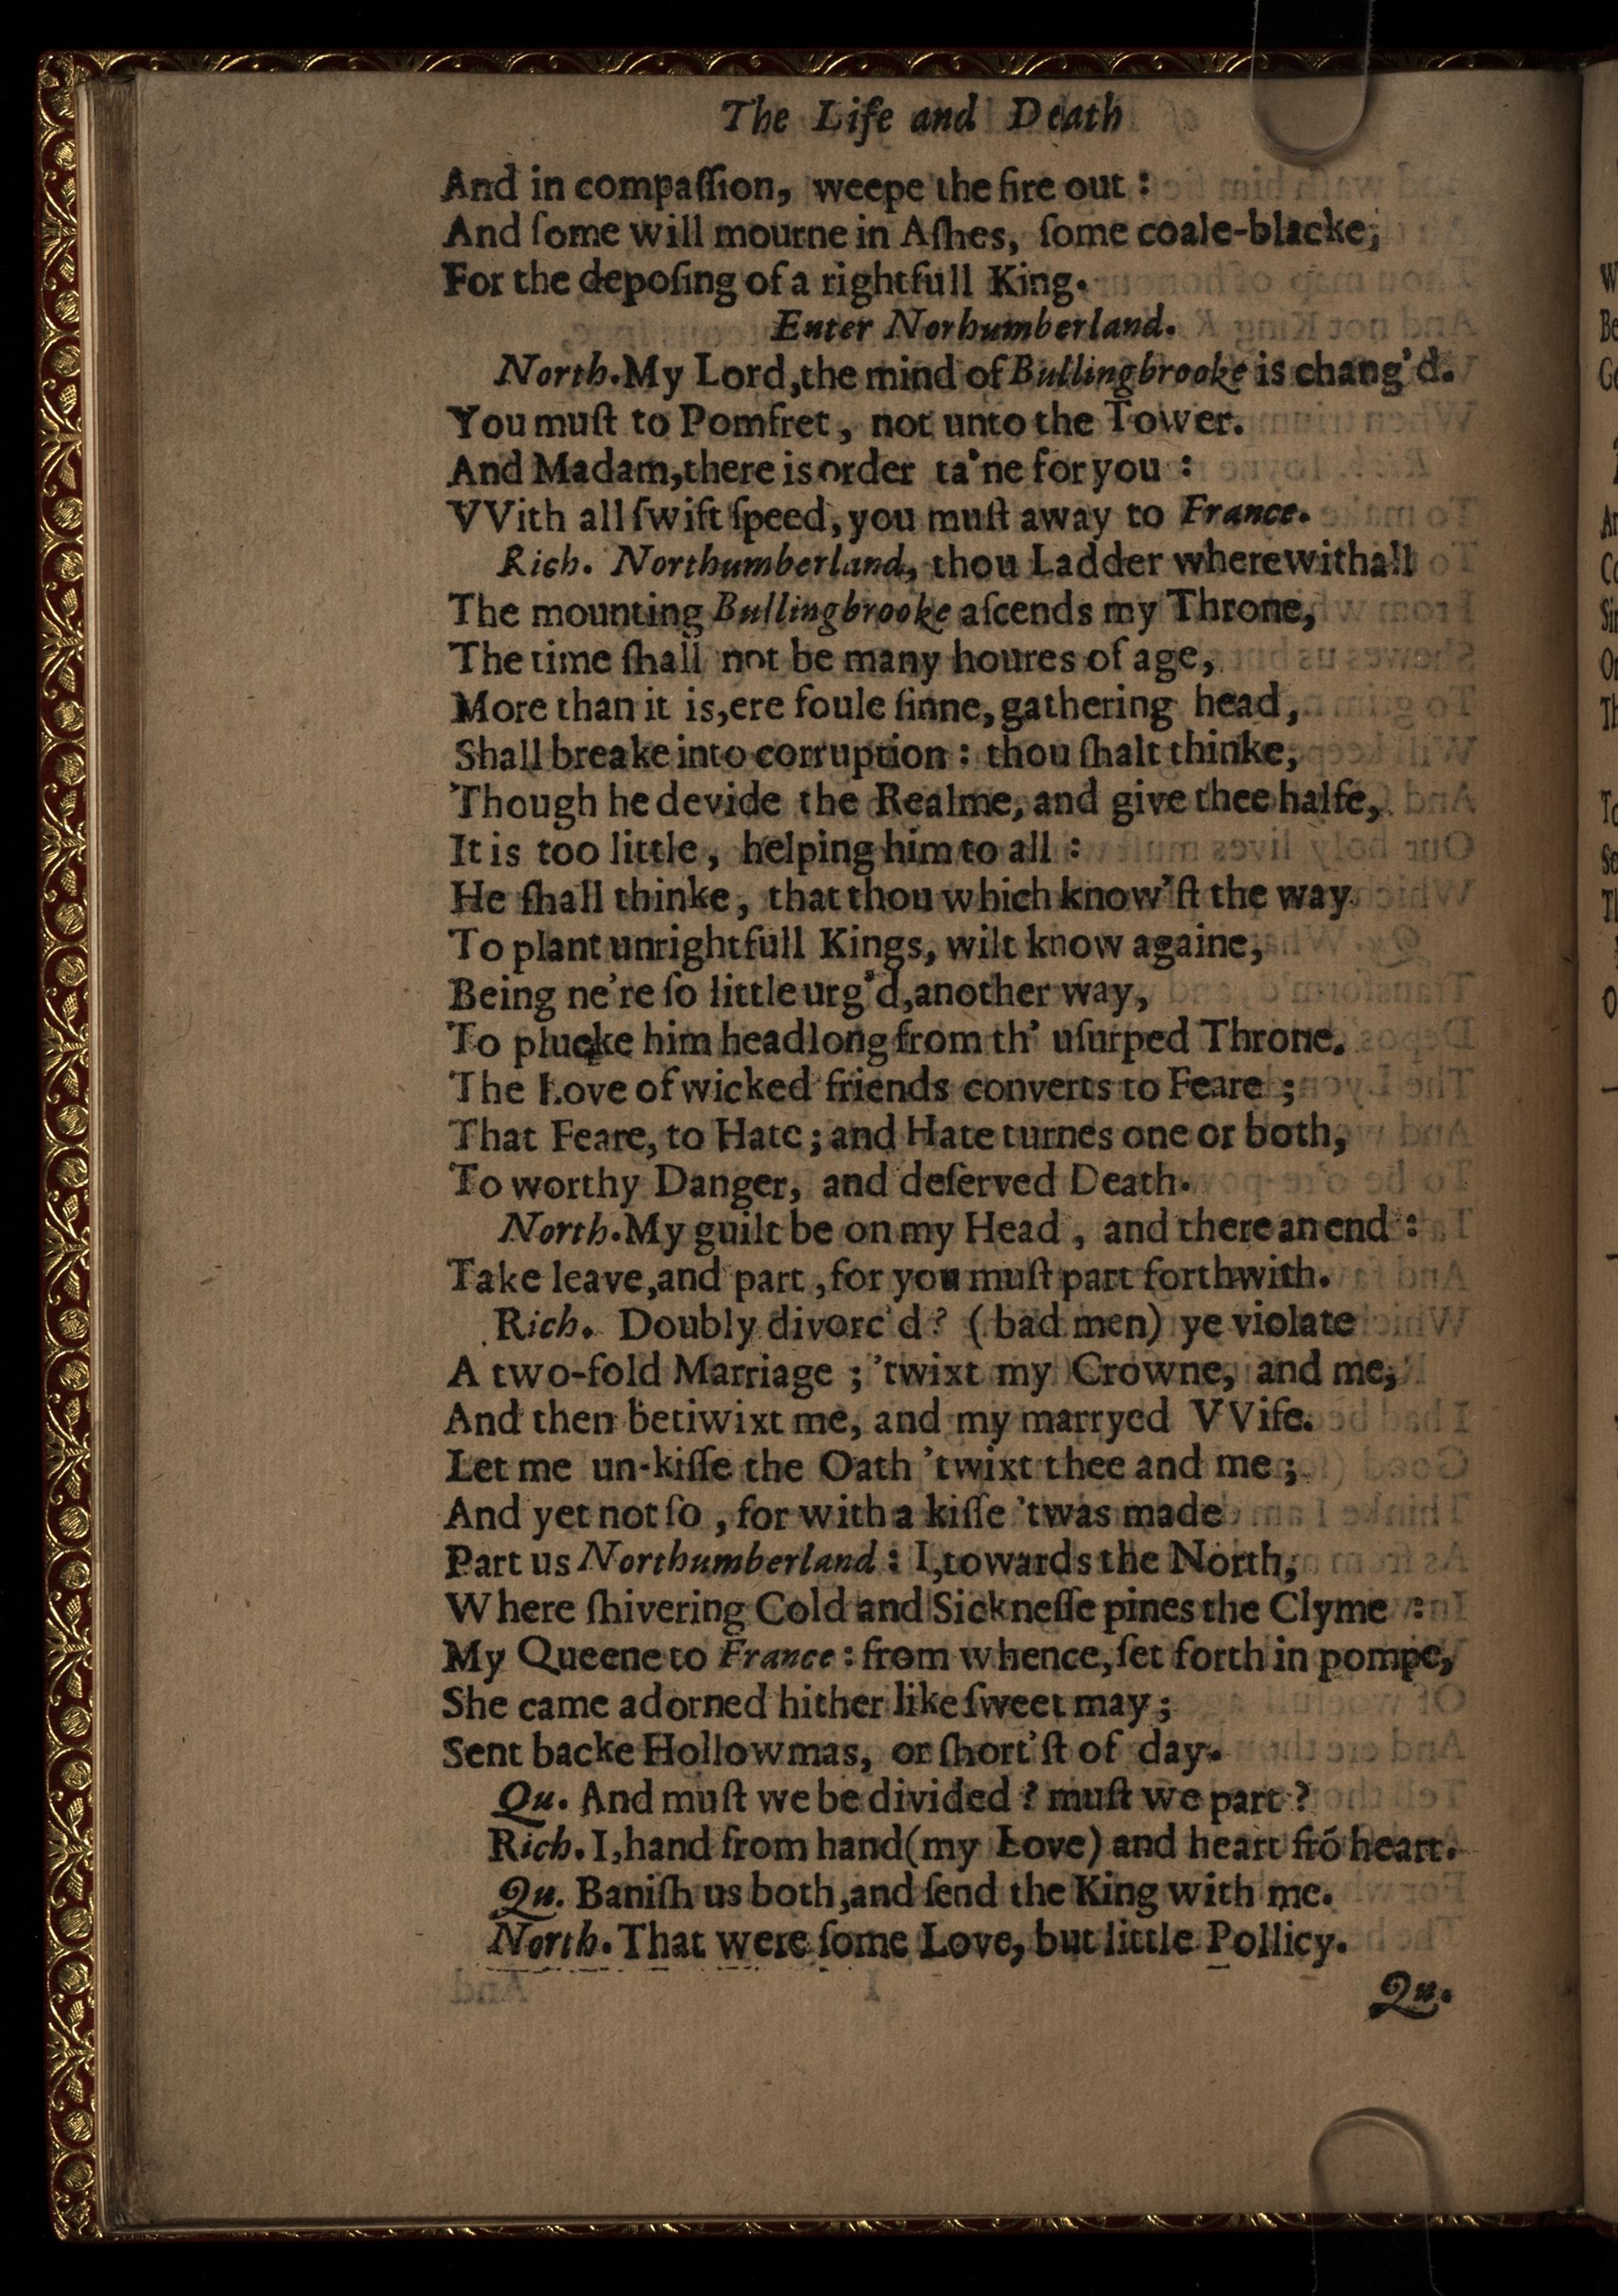 The Life and Death
And in compaſſion, weepe the fire out:
And ſome will mourne in Aſhes, ſome coale-blacke,
For the depoſing of a rightfull King.
Enter Norhumberland.
North. My Lord, the mind of Bullingbrooke is chang'd.
You muſt to Pomfret, not unto the Tower.
And Madam, there is order ta'ne for you:
VVith all ſwift ſpeed, you muſt away to France.
Rich. Northumberland, thou Ladder wherewithall
The mounting Bullingbrooke aſcends my Throne,
The time ſhall not be many houres of age,
More than it is, ere foule ſinne, gathering head,
Shall breake into corruption: thou ſhalt thinke,
Though he devide the Realme, and give thee halfe,
It is too little, helping him to all:
He ſhall thinke, that thou which know'ſt the way
To plant unrightfull Kings, wilt know againe,
Being ne're ſo little urg'd, another way,
To plucke him headlong from th' uſurped Throne.
The Love of wicked friends converts to Feare;
That Feare, to Hate; and Hate turnes one or both,
To worthy Danger, and deſerved Death.
North. My guilt be on my Head, and there an end:
Take leave, and part, for you muſt part forthwith.
Rich. Doubly divorc'd? (bad men) ye violate
A two-fold Marriage; 'twixt my Crowne, and me,
And then betiwixt me, and my marryed VVife.
Let me un-kiſſe the Oath 'twixt thee and me;
And yet not ſo, for with a kiſſe 'twas made
Part us Northumberland: I, towards the North,
Where ſhivering Cold and Sickneſſe pines the Clyme:
My Queene to France: from whence, ſet forth in pompe,
She came adorned hither like ſweet may;
Sent backe Hollowmas, or ſhort'ſt of day.
Qu. And muſt we be divided? muſt we part?
Rich. I, hand from hand (my Love) and heart frō heart.
Qu. Baniſh us both, and ſend the King with me.
North. That were ſome Love, but little Pollicy.
Qu.